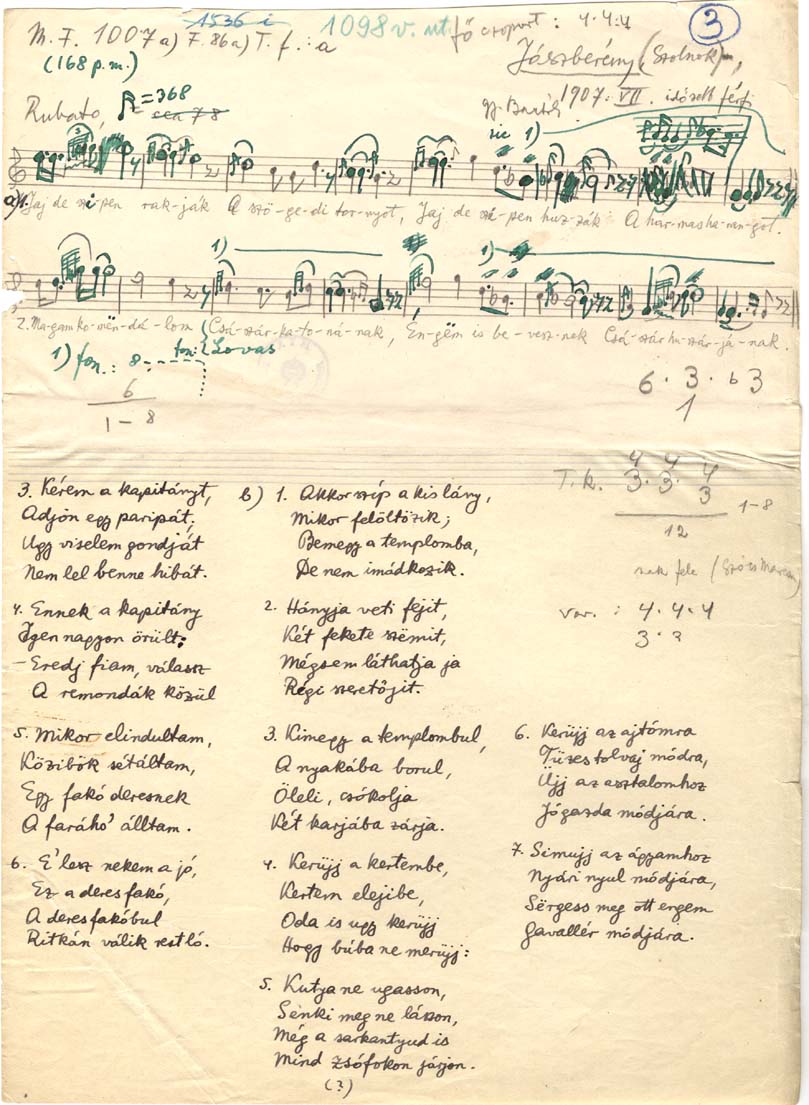 1536 i
1098 v. ut fő csoport : 4.4.4
3
M. F. 1007 a) F. 86 a) T. f. : a
(168 p.m.)
Jászberény (Szolnok),
Rubato, = 368
1907. VII. idősebb férfi
gy. Bartók
sic 1)
a) 1. Jaj de szépen rak-ják A szö-ge-di tor-nyot, Jaj de szé-pen huz-zák A har-mas ha-ran-got.
1) 1)
2. Ma-gam ko-mën-dá-lom Csá-szár ka-to-ná-nak, En-gëm is be-vesz-nek Csá-szár hu-szár-já-nak.
1) fon. : 8 fon: Lovas
6
1 - 8
6 . 3 . b3
1
T. k. 3 . 3 . 3
4 4 4
12
1-8
var. : 4 . 4 . 4
3 .
3. Kérem a kapitányt,
Adjon egy paripát;
Ugy viselem gondját
Nem lel benne hibát.
4. Ennek a kapitány
Igen nagyon örült:
- Eredj fiam, válassz
A remondák közül
5. Mikor elindultam,
Közibök sétáltam,
Egy fakó deresnek
A faráho' álltam.
6. E' lesz nekem a jó,
Ez a deres fakó,
A deres fakóbul
Ritkán válik rest ló.
b) 1. Akkor szíp a kis lány,
Mikor felöltözik;
Bemegy a templomba,
De nem imádkozik.
2. Hányja veti fejit,
Két fekete szëmit,
Mégsem láthatja ja
Régi szeretőjit.
3. Kimegy a templombul,
A nyakába borul,
Öleli, csókolja
Két karjába zárja.
4. Kerüjj a kertembe,
Kertem elejibe,
Oda is ugy kerüjj
Hogy búba ne merüjj:
5. Kutya ne ugasson,
Senki meg ne lásson,
Még a sarkantyud is
Mind zsófokon járjon.
(?)
6. Kerüjj az ajtómra
Tüzes tolvaj módra,
Üjj az asztalomhoz
Jógazda módjára.
7. Simujj az ágyamhoz
Nyári nyul módjára,
Sërgess meg ott engem
Gavallér módjára.